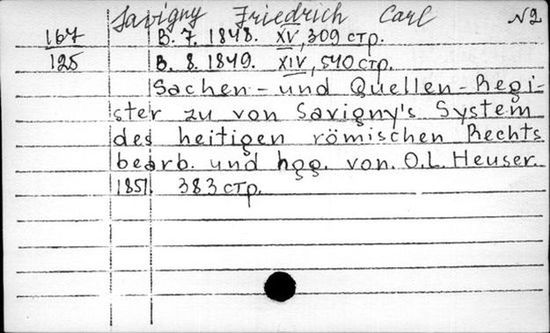 Savigny Friedrich Carl N2
167 B. 7. 1848. XV, 309 стр.
125 B. 8. 1849. XIV, 540 стр.
Sachen- und Quellen-Regi-
ster zu von Savigny's System
des heitigen römischen Rechts
bearb. und hgg. von. O.L. Heuser.
1851. 383 стр.